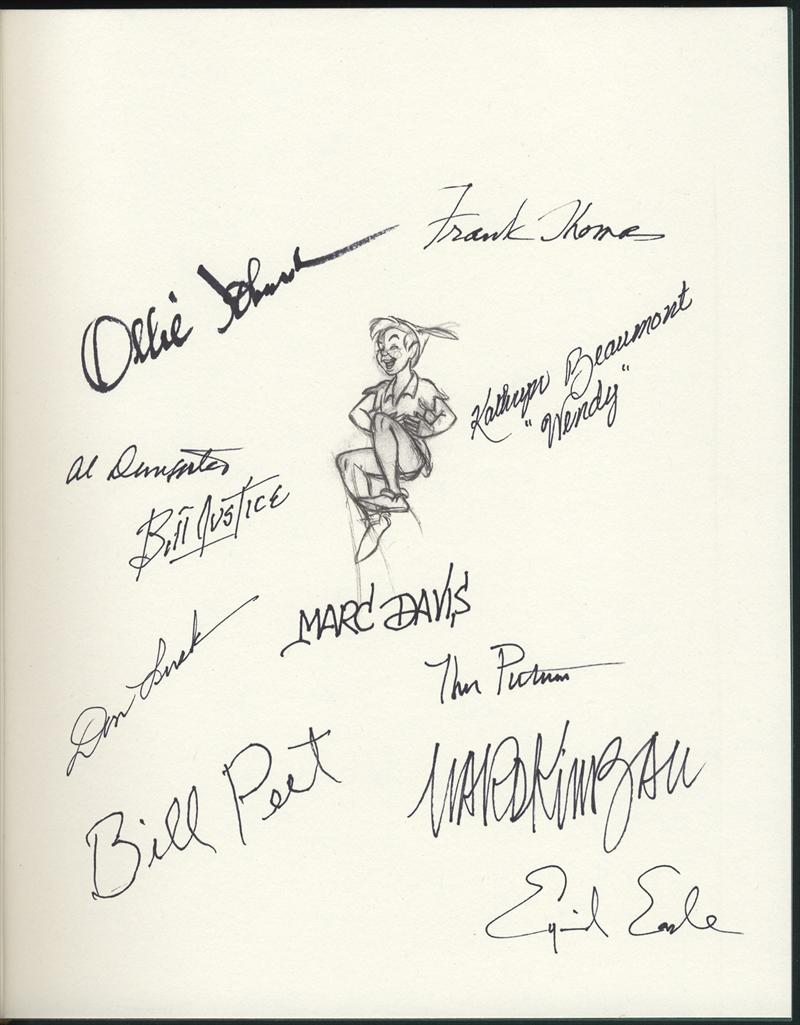 Frank Thomas
Ollie Johnston
Kathryn Beaumont
"Wendy"
Al Dempster
Bill Justice
MARC DAVIS
Don Lusk
Thor Putnam
Bill Peet
WARD KIMBALL
Eyvind Earle